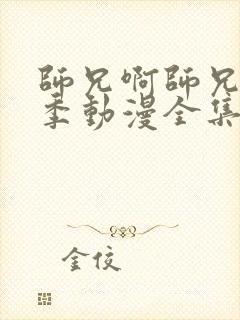 師兄啊師兄
季動漫全集
金佼